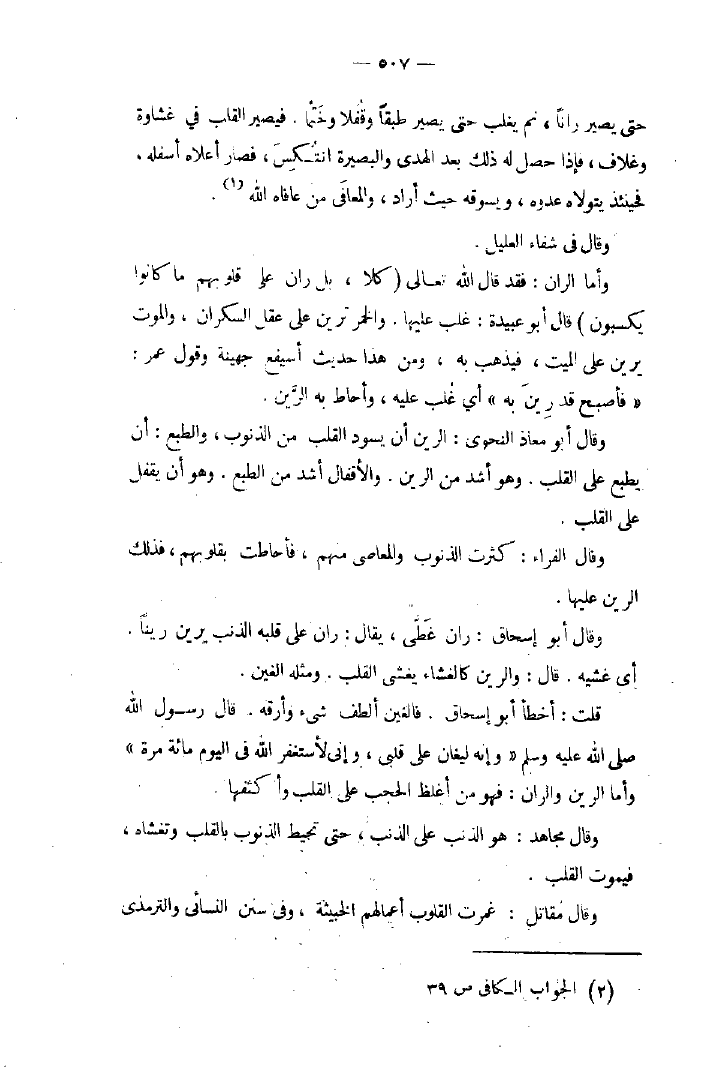 — ٥٠٧ —
حتى يصير راناً ، ثم يغلب حتى يصير طبقاً وقُفلا وخَتْما . فيصير القلب في غشاوة
وغلاف ، فإذا حصل له ذلك بعد الهدى والبصيرة انتُكِسَ ، فصار أعلاه أسفله .
فحينئذ يتولاه عدوه ، ويسوقه حيث أراد ، والمعافَى من عافاه الله (١) .
وقال فى شفاء العليل .
وأما الران : فقد قال الله تعالى ( كلا ، بل ران على قلوبهم ما كانوا
يكسبون ) قال أبو عبيدة : غلب عليها . والخمر ترين على عقل السكران ، والموت
يرين على الميت ، فيذهب به ، ومن هذا حديث أسيفع جهينة وقول عمر :
« فأصبح قد رِينَ به » أي غُلب عليه ، وأحاط به الرَّين .
وقال أبو معاذ النحوى : الرين أن يسود القلب من الذنوب ، والطبع : أن
يطبع على القلب . وهو أشد من الرين . والأقفال أشد من الطبع . وهو أن يقفل
على القلب .
وقال الفراء : كثرت الذنوب والمعاصى منهم ، فأحاطت بقلوبهم ، فذلك
الرين عليها .
وقال أبو إسحاق : ران غَطَّى ، يقال : ران على قلبه الذنب يرين ريناً .
أى غشيه . قال : والرين كالغشاء يغشى القلب . ومثله الغين .
قلت : أخطأ أبو إسحاق . فالغين ألطف شىء وأرقه . قال رسول الله
صلى الله عليه وسلم « وإنه ليغان على قلبى ، وإنى لأستغفر الله فى اليوم مائة مرة »
وأما الرين والران : فهو من أغلظ الحجب على القلب وأكثفها .
وقال مجاهد : هو الذنب على الذنب ، حتى تحيط الذنوب بالقلب وتغشاه ،
فيموت القلب .
وقال مُقاتل : غمرت القلوب أعمالهم الخبيثة ، وفى سنن النسائى والترمذى
(٢) الجواب الكافى ص ٣٩